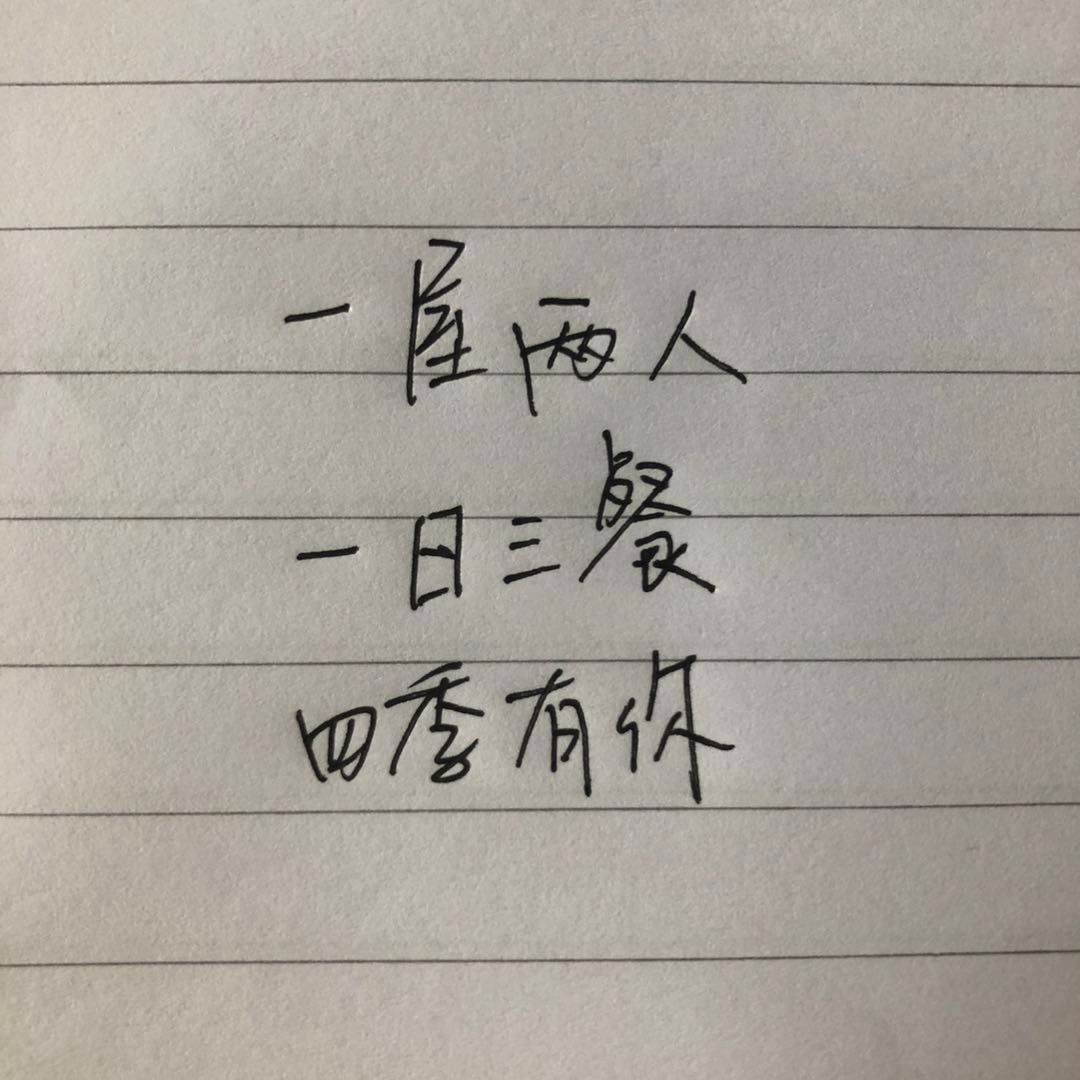 一屋两人
一日三餐
四季有你